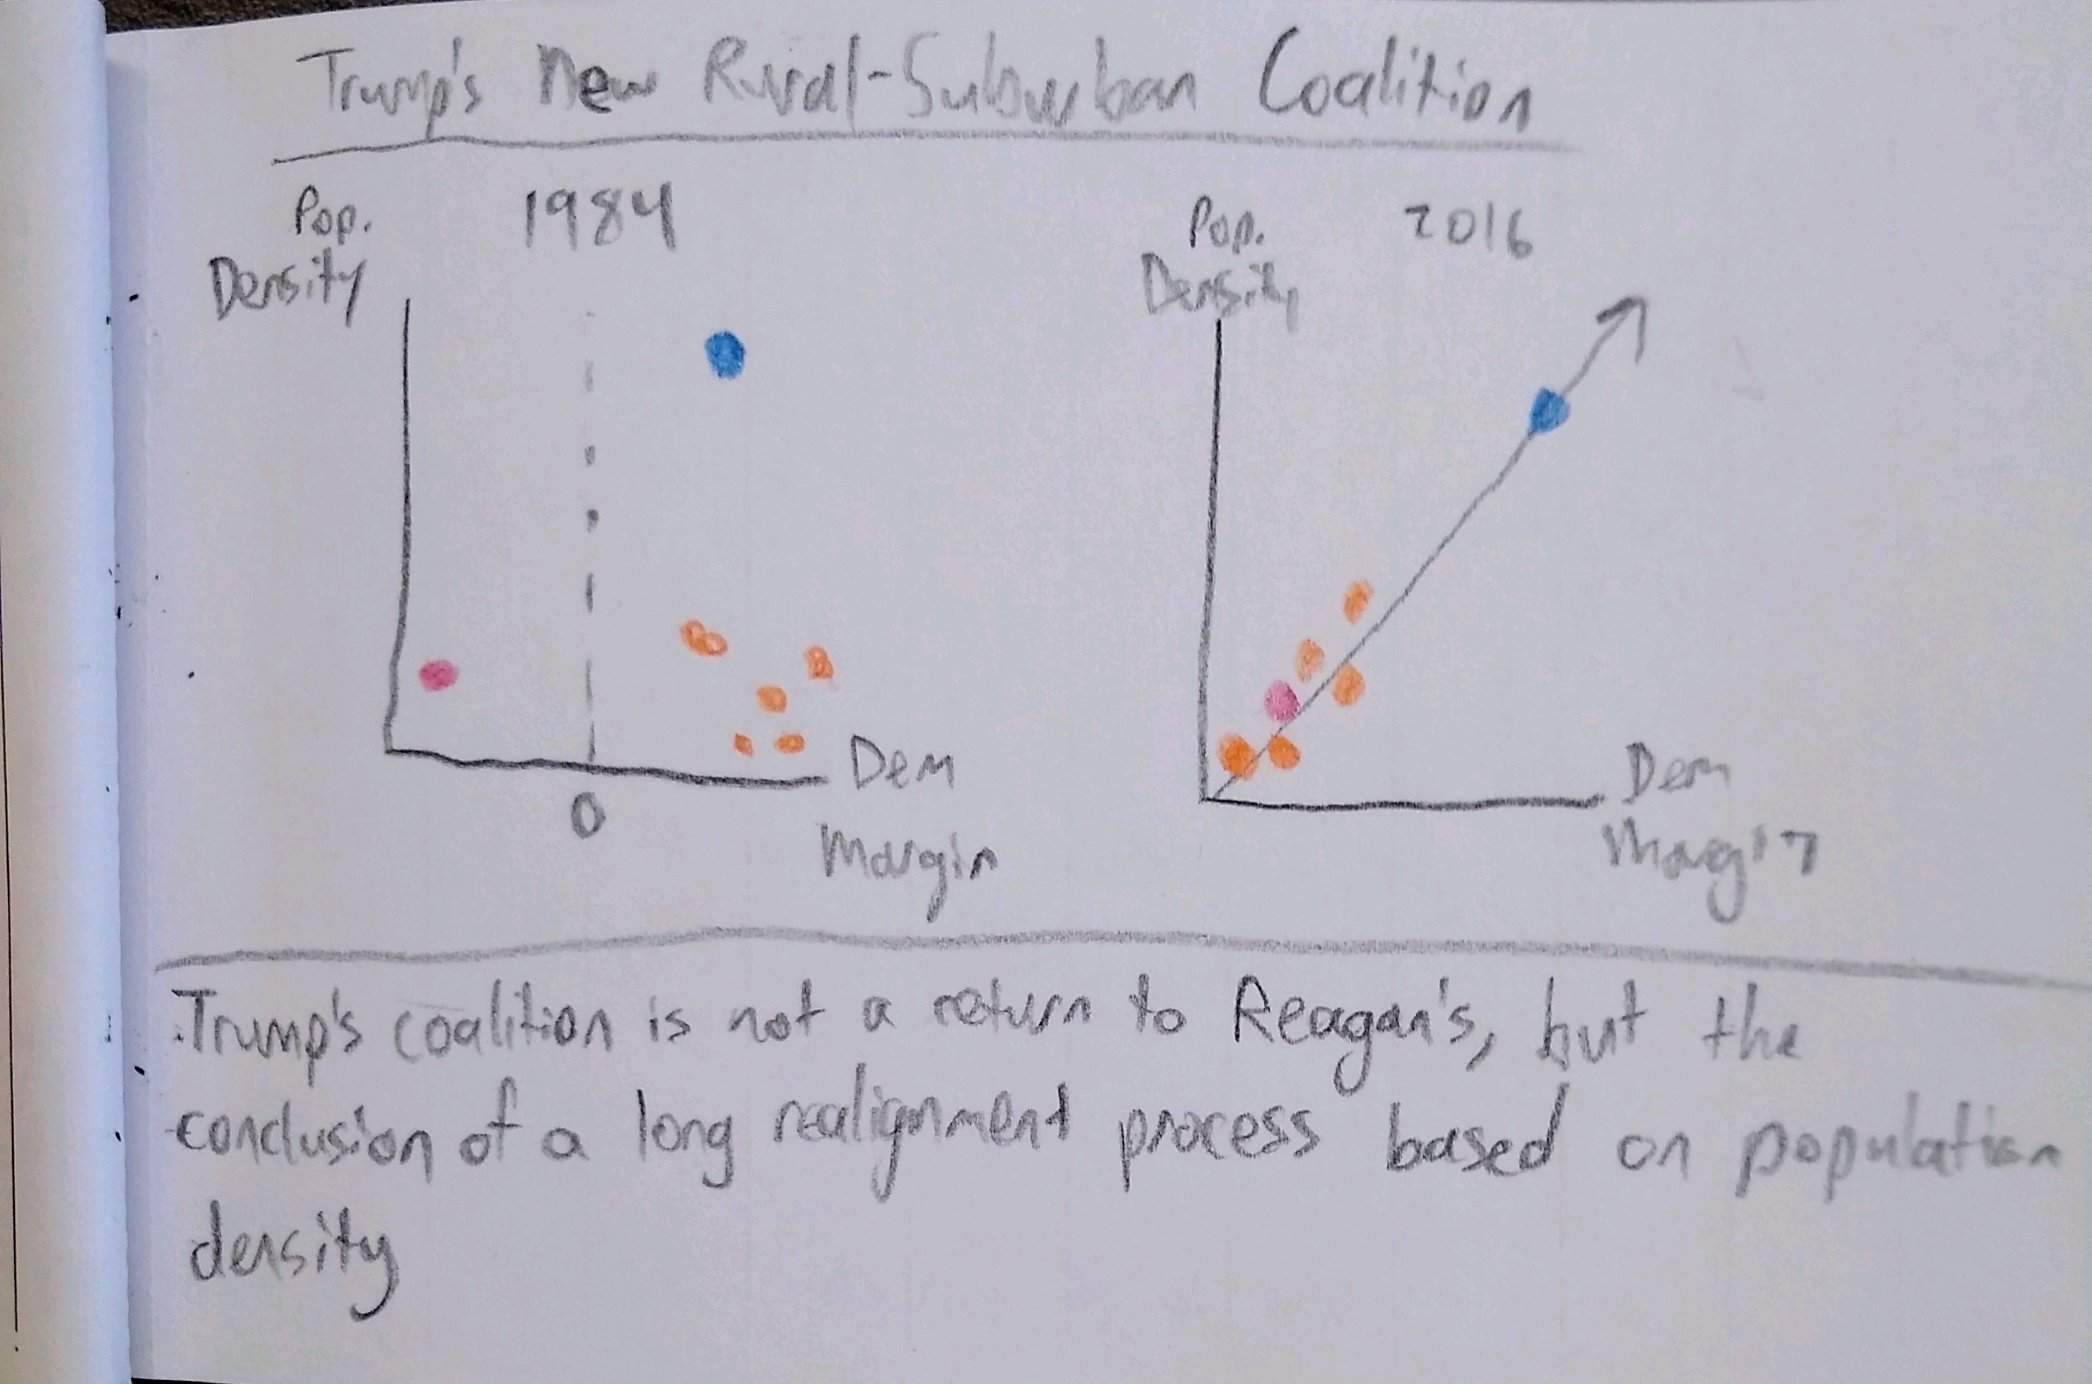 Trump's New Rural-Suburban Coalition
Pop. 1984
Density
0
Dem
Margin
Pop. 2016
Density
Dem
Margin
Trump's coalition is not a return to Reagan's, but the
conclusion of a long realignment process based on population
density